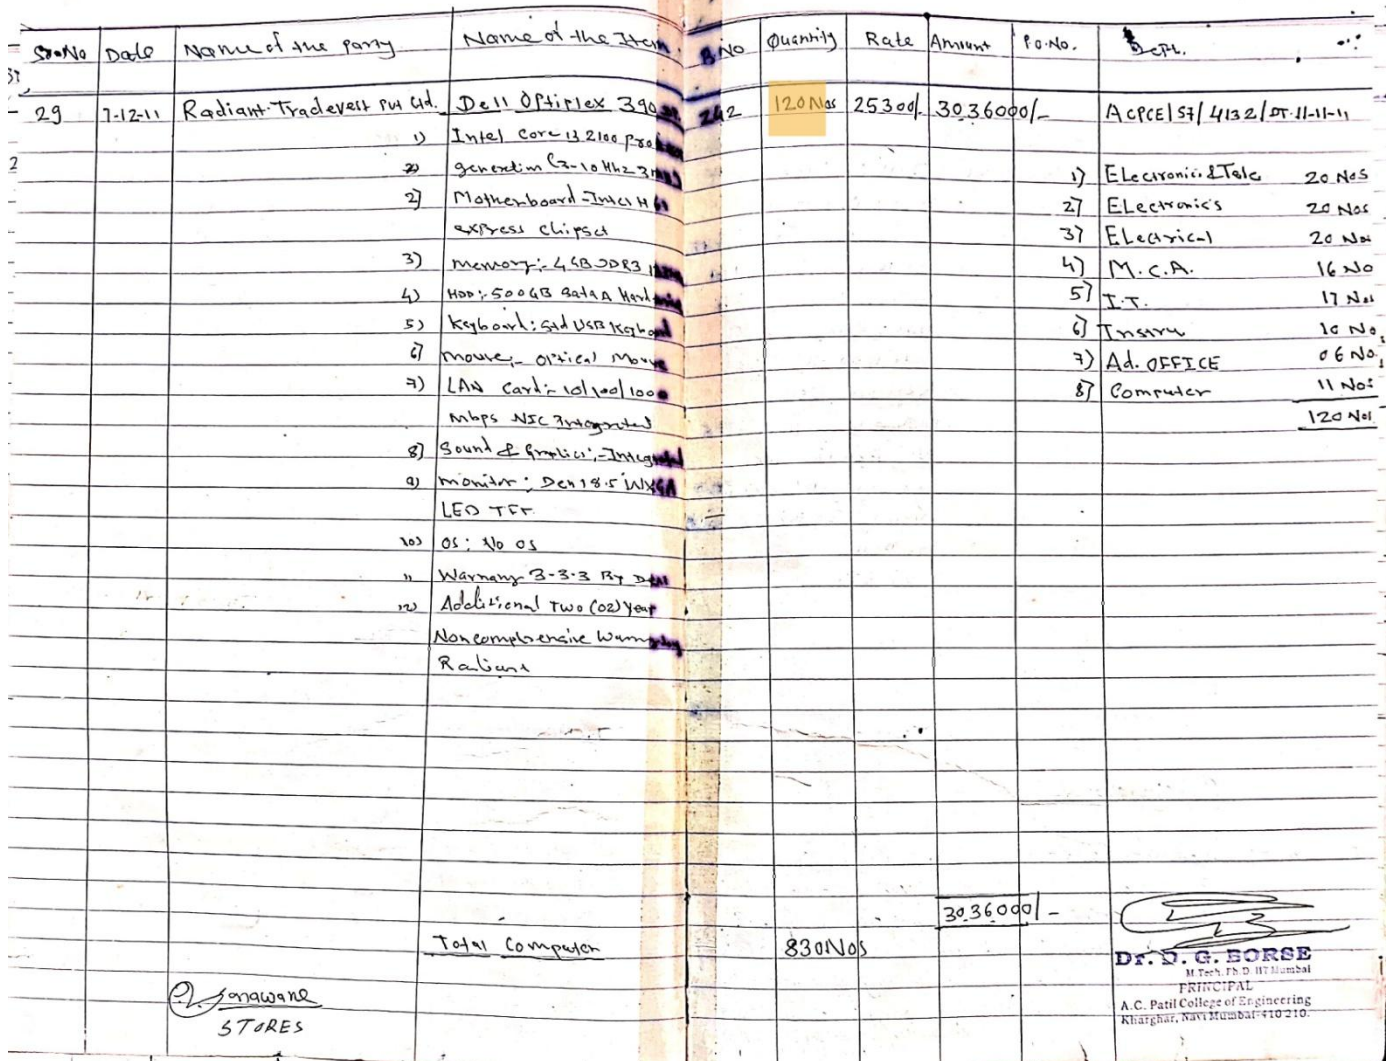 Sr.No Date Name of the Party Name of the Item B.No Quantity Rate Amount P.O.No. Dept.
29 7-12-11 Radiant Tradevest Pvt Ltd. Dell Optiplex 390 242 120 Nos 25300/- 3036000/- ACPCE/57/4132/DT-11-11-11
1) Intel Core i3 2100
generation
1) Electronics & Tele 20 Nos
2) Motherboard - Intel H
2) Electronics 20 Nos
express chipset
3) Electrical 20 Nos
3) Memory:- 4GB DDR3
4) M.C.A. 16 No
4) HDD:- 500GB Sata Hard
5) I.T. 17 Nos
5) Keyboard: Std USB Keyboard
6) Instru 10 No
6) Mouse:- Optical Mouse
7) Ad. OFFICE 06 No.
7) LAN Card:- 10/100/1000
8) Computer 11 Nos
Mbps NIC Integrated
120 Nos
8) Sound & Graphics:- Integrated
9) Monitor: Dell 18.5 WXGA
LED TFT
10) OS: No OS
11 Warranty 3-3-3 By Dell
12) Additional Two (02) Year
Noncomprensive
Radiant
3036000/-
Total Computer 830 Nos
Sonawane
STORES
Dr. D. G. BORSE
M.Tech. Ph.D. IIT Mumbai
PRINCIPAL
A.C. Patil College of Engineering
Kharghar, Navi Mumbai-410 210.